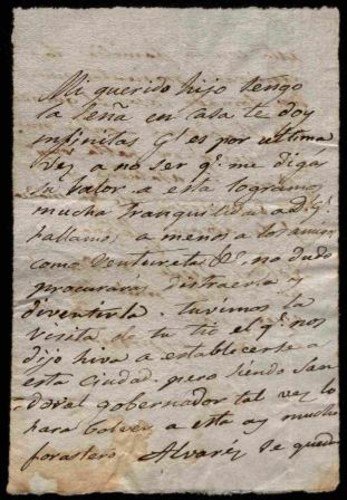 Mi querido hijo tengo
la Leña en casa te doy
infinitas G.s es por ultima
vez a no ser q.e me digas
su valor. a esta logramos
mucha tranquilidad ad.
hallamos a menos a los
como Ventureta &c. no dudo
procuraras distraerla y
divertirla. tuvimos la
visita de tu tio el q.e nos
dijo hiva a establecerse a
esta Ciudad. pero siendo San
doval gobernador tal vez lo
hara bolver a esta ay mucho
forastero Alvarez se quedo